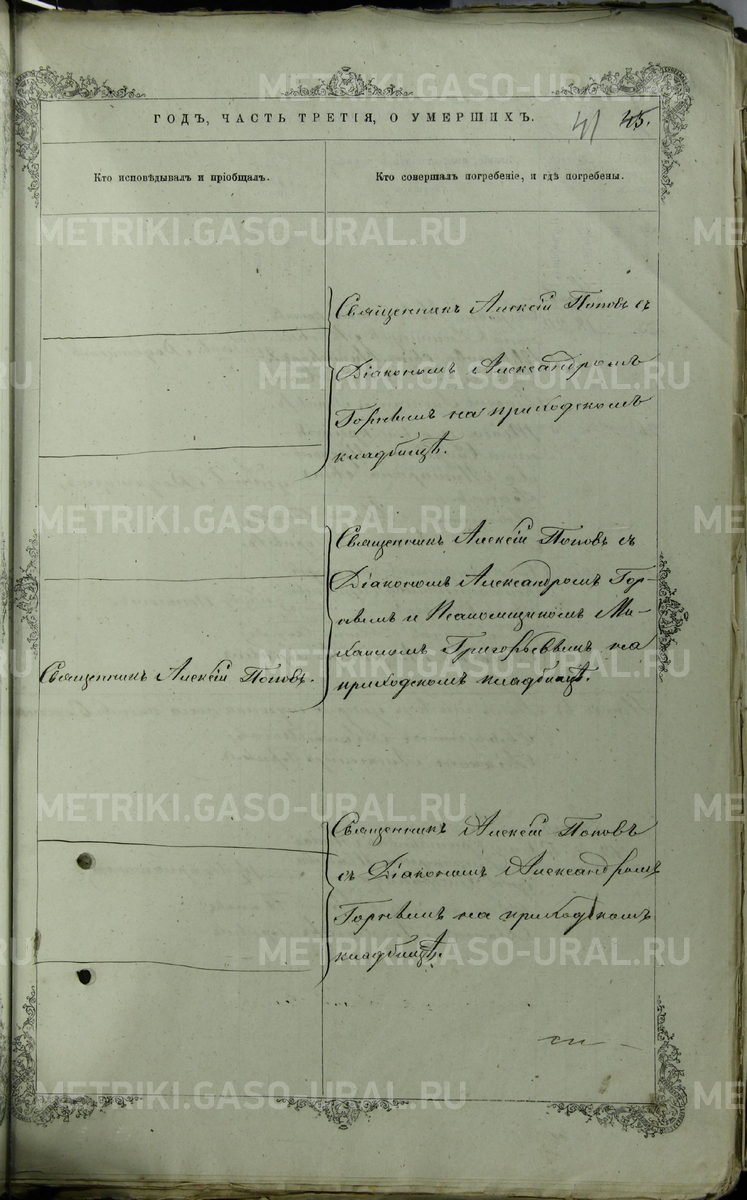 ГОДЪ, ЧАСТЬ ТРЕТІЯ, О УМЕРШИХЪ.
41 45.
Кто исповѣдывалъ и пріобщалъ.
Кто совершалъ погребеніе, и гдѣ погребены.
Священникъ Алексій Поповъ съ
Діакономъ Александромъ
Горнымъ на приходскомъ
кладбищѣ.
Священникъ Алексій Поповъ съ
Діакономъ Александромъ Гор-
нымъ и Псаломщикомъ Ми-
хаиломъ Григорьевымъ на
приходскомъ кладбищѣ.
Священникъ Алексій Поповъ.
Священникъ Алексій Поповъ
съ Діакономъ Александромъ
Горнымъ на приходскомъ
кладбищѣ.
METRIKI.GASO-URAL.RU